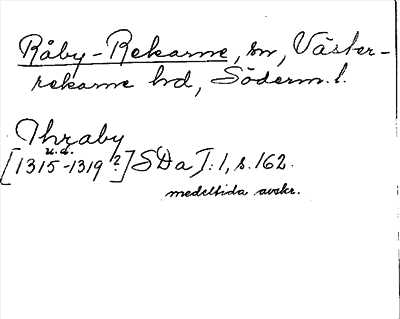 Råby-Rekarne, sn, Väster-
rekarne hd, Söderm. l.
Thraby
u.å.
[1315-1319?] SDa I:1, s. 162.
medeltida avskr.